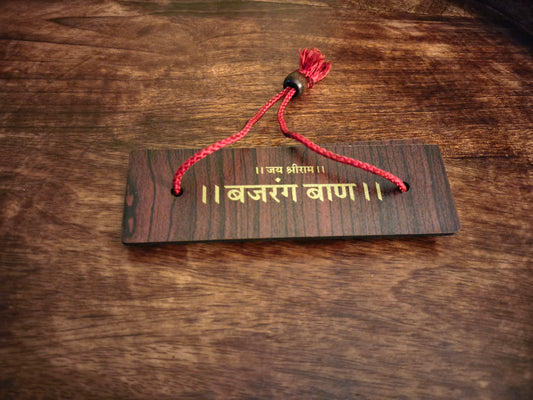 ।। जय श्रीराम ।।
।। बजरंग बाण ।।